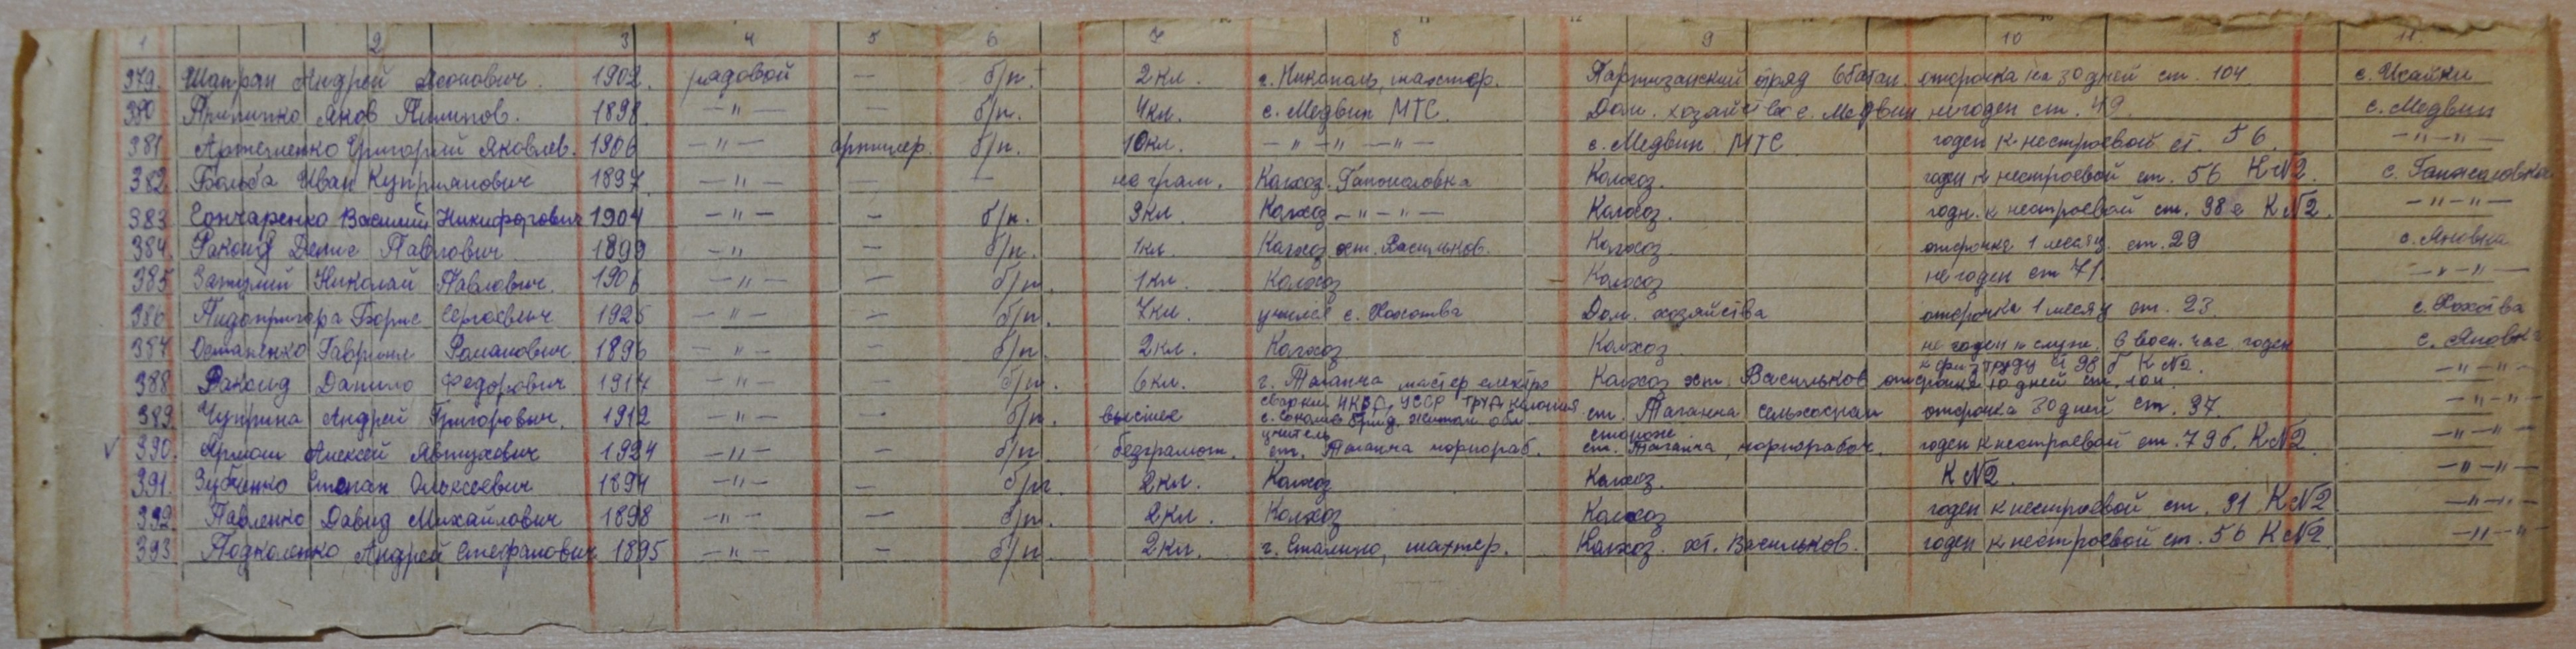 1 2 3 4 5 6 7 8 9 10 11
379. Шапран Андрей Леонович. 1902. рядовой — б/п. 2 кл. г. Никополь, шахтер. Партизанский отряд 6 батал. отсрочка на 30 дней ст. 104 с. Исайки
380 Прилипко Яков Пилипов. 1898. —"— б/п. 4 кл. с. Медвин МТС. Дом. хозяйства с. Медвин не годен ст. 49. с. Медвин
381 Артеменко Григорий Яковлев. 1906 —"— артилер. б/п. 10 кл. —"—"—"— с. Медвин МТС годен к нестроевой ст. 56. —"—"—
382. Больба Иван Куприянович 1897. —"— — — не грам. Колхоз. Колхоз. годен к нестроевой ст. 56 К №2. с.
383. Гончаренко Василий Никифорович 1904 —"— — б/п. 3 кл. Колхоз —"—"— Колхоз. годн. к нестроевой ст. 98 е К №2. —"—"—
384. Ракоид Денис Павлович 1899 —"— — б/п. 1 кл. Колхоз хут. Васильков. Колхоз отсрочка 1 месяц ст. 29 с. Яновка
385 Николай Павлович. 1906 —"— — б/п. 1 кл. Колхоз Колхоз не годен ст 71. —"—"—
386 Пидопригора Борис Сергоевич 1925 —"— — б/п. 7 кл. учился с. Хохитва Дом. хозяйства отсрочка 1 месяц ст. 23. с. Хохитва
387 Остапенко Гаврил Романович 1896 —"— — б/п. 2 кл. Колхоз Колхоз не годен к служ. в воен. час годен с. Яновка
к физ. труду ст 98 б К №2.
388 Ракоид Данило Федорович 1917 —"— — б/п. 6 кл. г. Таганча мастер електро Колхоз хут. Васильков отсрочка 10 дней ст. —"—"—
сварки НКВД, УССР труд колония
389. Чуприна Андрей Григорович. 1912 —"— — б/п. высшее с. Житом. обл. ст. Таганча отсрочка 30 дней ст. 37. —"—"—
учитель сторож
✓ 390. Ярмош Алексей Явтухович 1924 —"— — б/п безграмот. ст. Таганча чорнораб. ст. Таганча, чорнорабоч. годен к нестроевой ст. 79 б. К №2 —"—"—
391. Зубченко Степан Ольксеевич 1894 —"— — б/п. 2 кл. Колхоз Колхоз. К №2. —"—"—
392. Павленко Давид Михайлович 1898 —"— — б/п. 2 кл. Колхоз Колхоз годен к нестроевой ст. 31 К №2 —"—"—
393 Подколенко Андрей Стефанович 1895 —"— — б/п 2 кл. г. Сталино, шахтер. Колхоз. хт. Васильков. годен к нестроевой ст. 56 К №2 —"—"—